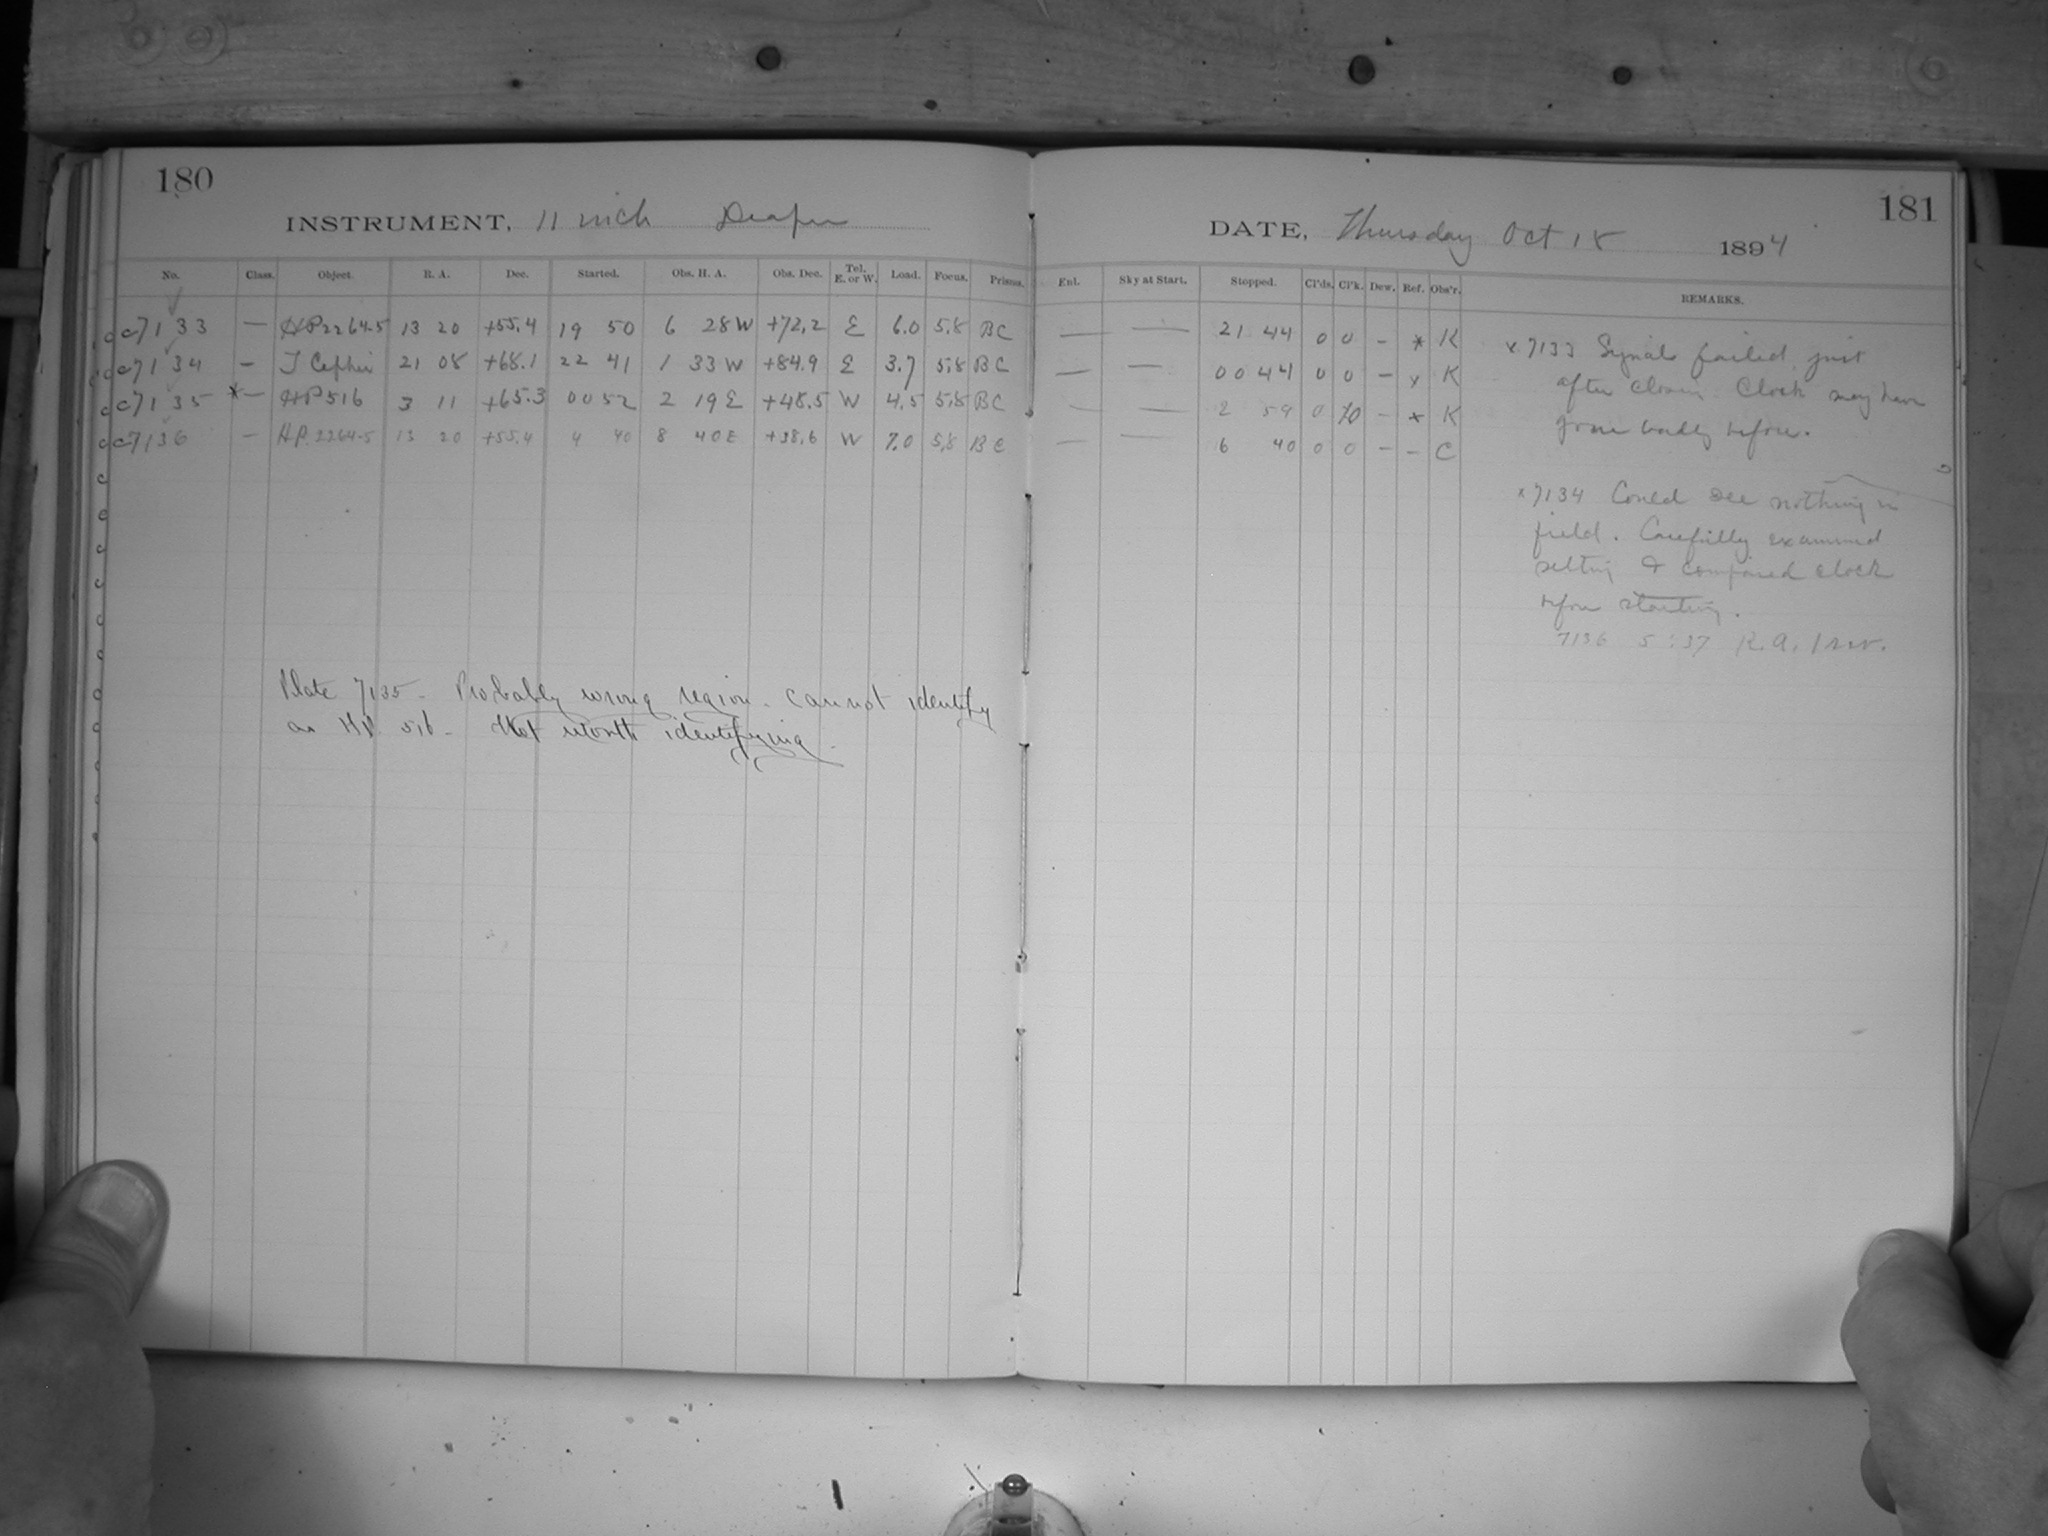 180
INSTRUMENT, 11 inch Draper
No. Class. Object. R. A. Dec. Started. Obs. H. A. Obs. Dec. Tel. E. or W. Load. Focus. Prisms.
c 7133 — HP 2264-5 13 20 +55.4 19 50 6 28 W +72.2 E 6.0 5.8 BC
c 7134 — T Cephei 21 08 +68.1 22 41 1 33 W +84.9 E 3.7 5.8 BC
c 7135 *— HP 516 3 11 +65.3 00 52 2 19 E +48.5 W 4.5 5.8 BC
c 7136 — HP. 2264-5 13 20 +55.4 4 40 8 40 E +38.6 W 7.0 5.8 BC
Plate 7135 - Probably wrong region - cannot identify
as HP. 516 - Not worth identifying -
181
DATE, Thursday Oct 18 1894
Enl. Sky at Start. Stopped. Cl'ds. Cl'k. Dew. Ref. Obs'r. REMARKS.
— — 21 44 0 0 - * K
— — 00 44 0 0 - x K
— — 2 59 0 - * K
— — 6 40 0 0 - - C
x 7133 Signals failed just
after closing. Clock may have
gone badly before.
x 7134 Could see nothing in
field. Carefully examined
setting & compared clock
before starting.
7136 5:37 R.A. 1 rev.